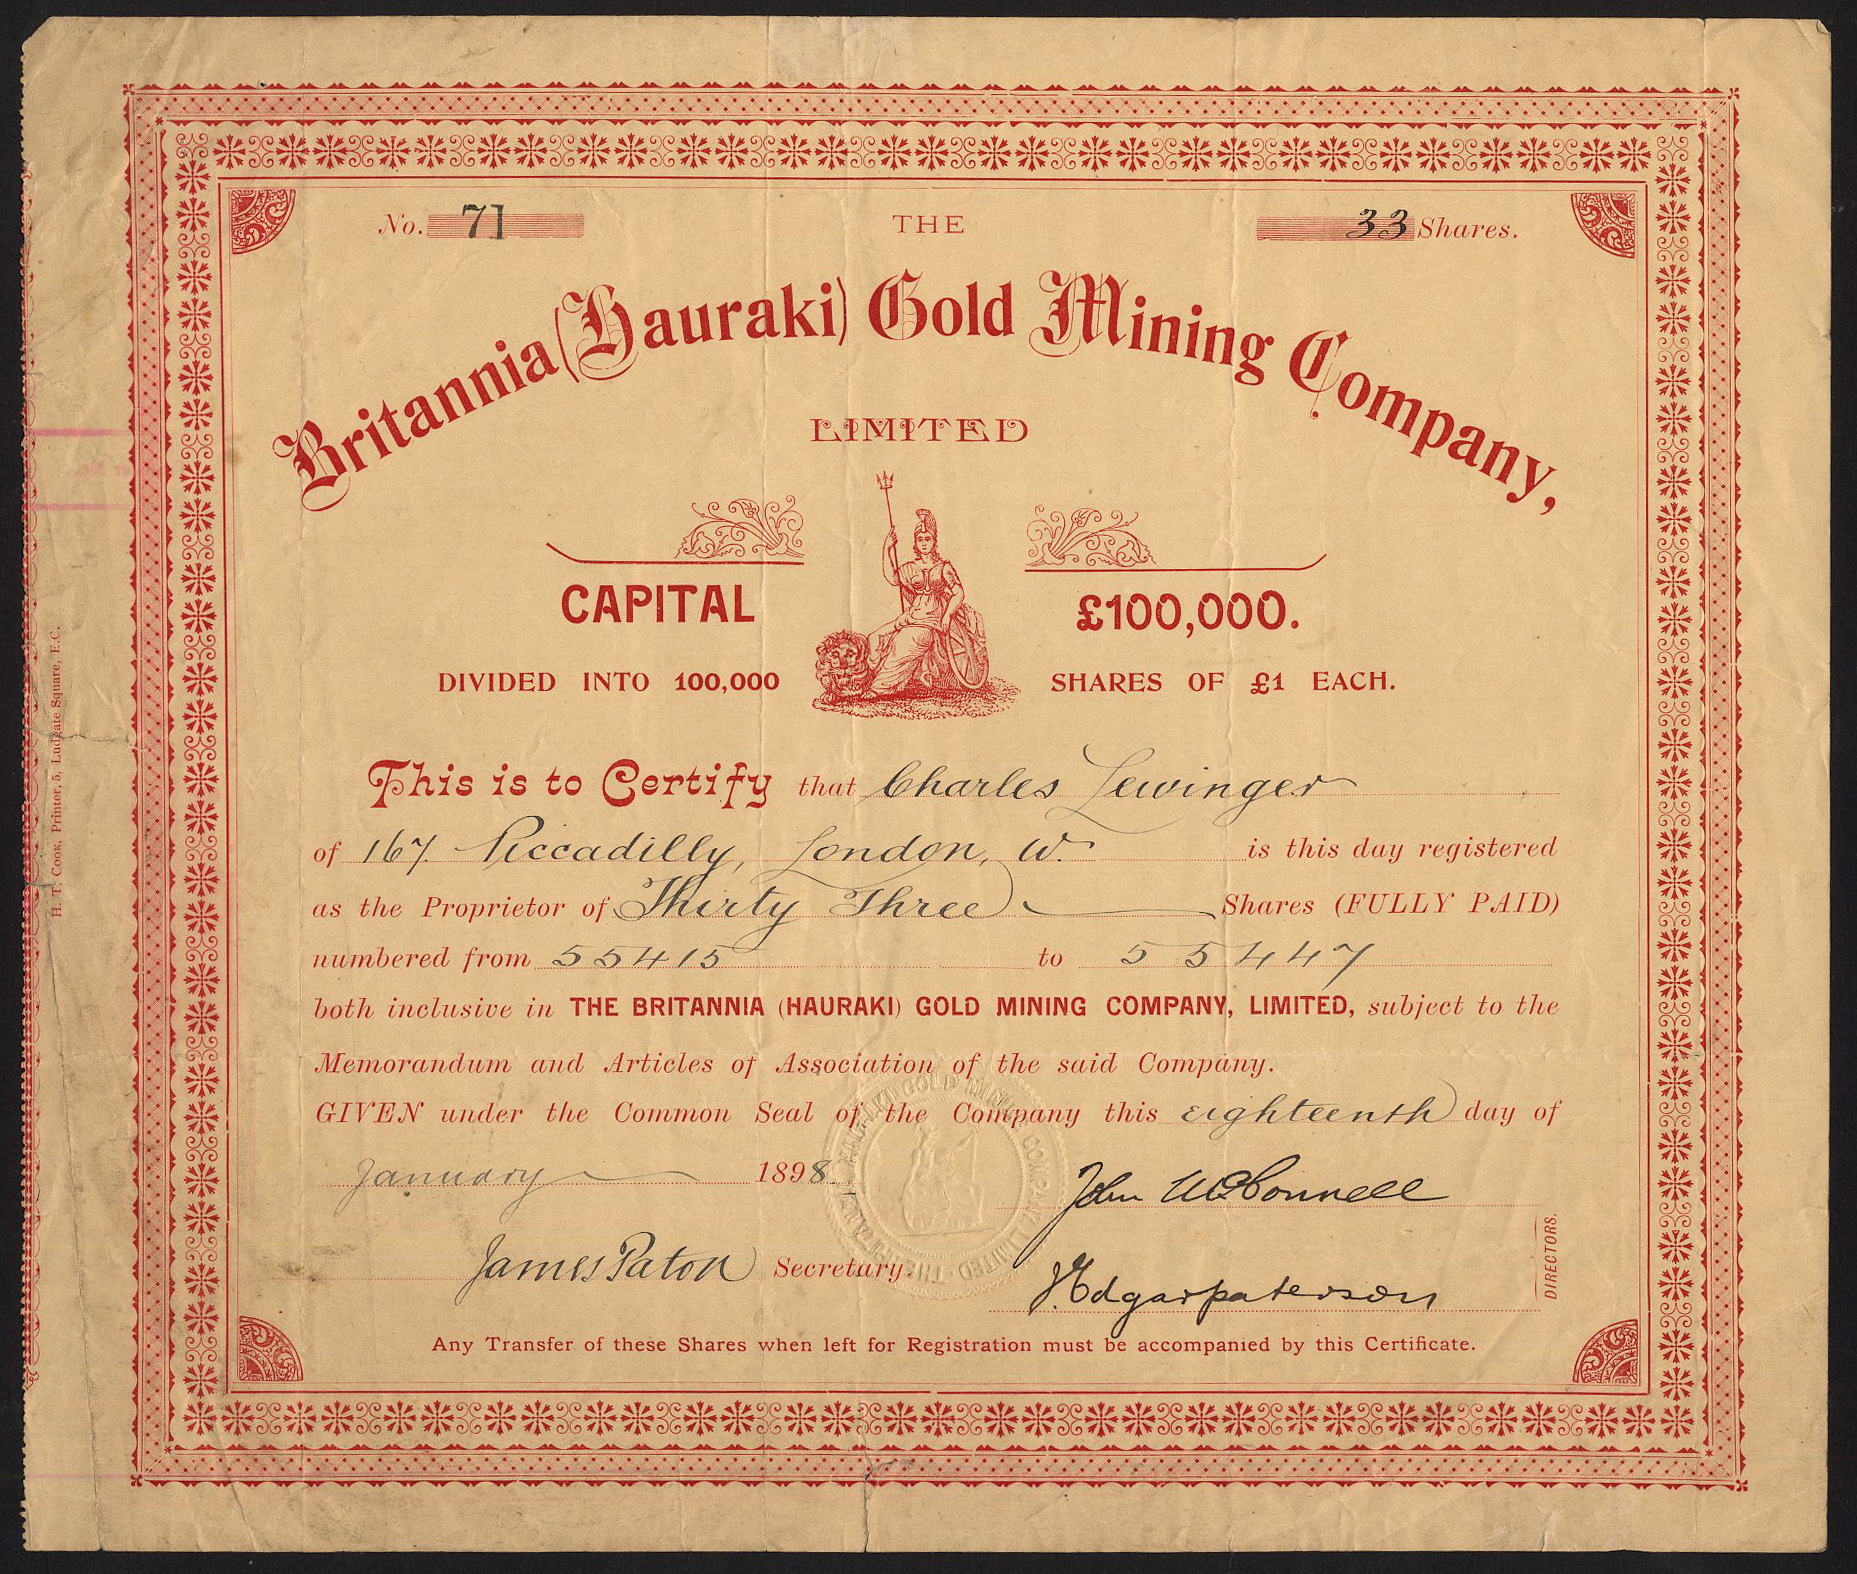 No. 71 THE 33 Shares.
Britannia (Hauraki) Gold Mining Company,
LIMITED
CAPITAL £100,000.
DIVIDED INTO 100,000 SHARES OF £1 EACH.
This is to Certify that Charles Lewinger
of 167. Piccadilly, London, W. is this day registered
as the Proprietor of Thirty Three Shares (FULLY PAID)
numbered from 55415 to 55447
both inclusive in THE BRITANNIA (HAURAKI) GOLD MINING COMPANY, LIMITED, subject to the
Memorandum and Articles of Association of the said Company.
GIVEN under the Common Seal of the Company this eighteenth day of
January 1898
John McConnell
James Paton Secretary.
J. Edgar Paterson
DIRECTORS.
Any Transfer of these Shares when left for Registration must be accompanied by this Certificate.
H. T. Cook, Printer, 5, Ludgate Square, E.C.
THE BRITANNIA HAURAKI GOLD MINING COMPANY LIMITED